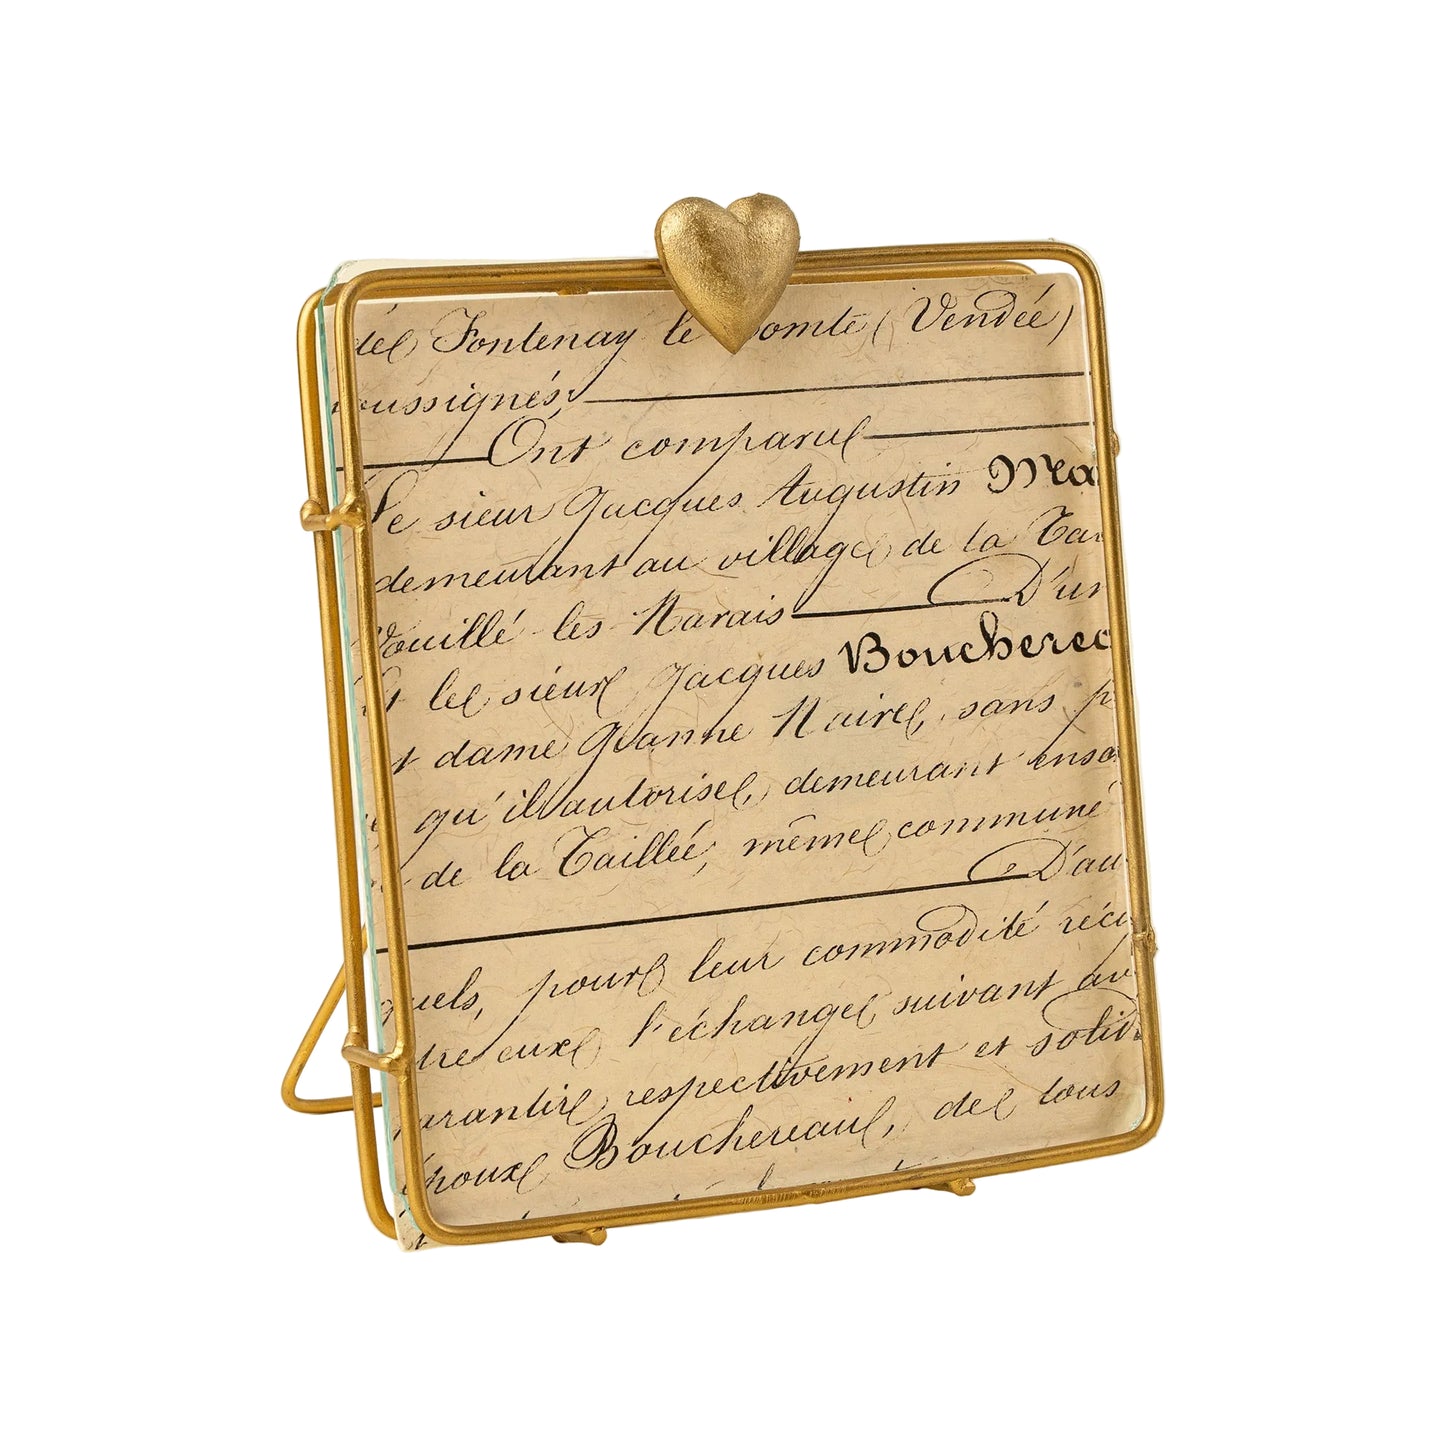 del Fontenay le Comte (Vendée)
soussignés,
Ont comparu
Le sieur Jacques Augustin
demeurant au village de la
Vouillé les Marais D'un
lel sieur Jacques Bouchere
dame Jeanne Naire, sans
qu'il autorise, demeurant
de la Taillée, même commune
D'au
quels, pour leur commodité réci
eux l'échange suivant av
arantir respectivement et solid
époux Bouchereau, de tous